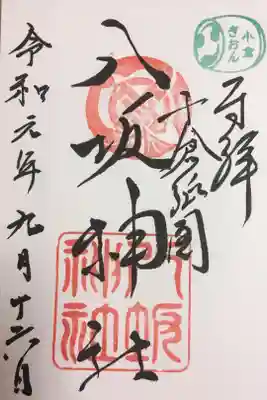 奉拝
小倉祇園
八坂神社
令和元年九月十六日
小倉
ぎおん
八坂神社